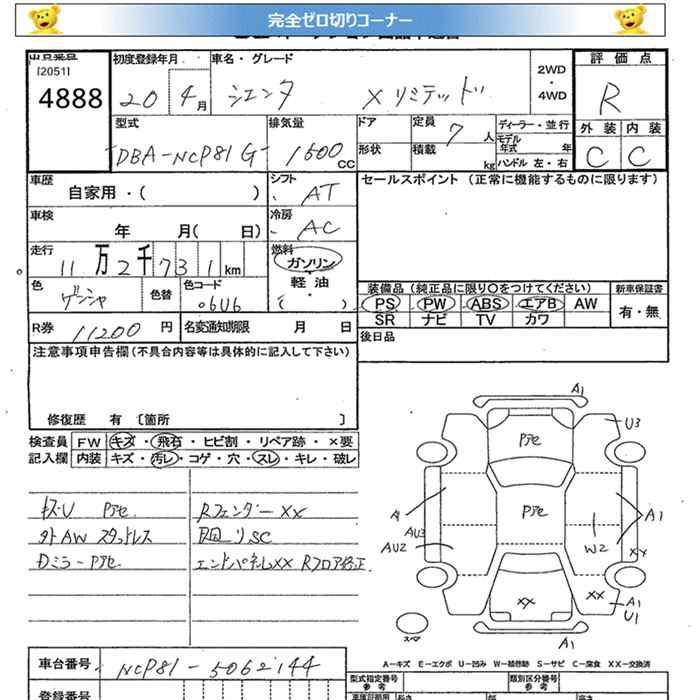 完全ゼロ切りコーナー
出品番号 初度登録年月 車名・グレード 評価点
12051
4888 20 4月 シエンタ Xリミテッド 2WD・4WD R
型式 排気量 ドア 定員 7人 ディーラー・並行 外装 内装
モデル年式 年
DBA-NCP81G 1500CC 形状 積載 kg ハンドル 左・右 C C
車歴 シフト セールスポイント (正常に機能するものに限ります)
自家用・( ) AT
車検 冷房
年 月( 日) AC
走行 燃料
11万2千731km ガソリン・軽油・( )
装備品(純正品に限り○をつけてください) 新車保証書
色 色替 色コード PS PW ABS エアB AW 有・無
06U6 SR ナビ TV カワ
R券 11200円 名変通知期限 月 日 後日品
注意事項申告欄(不具合内容等は具体的に記入して下さい)
修復歴 有 〔箇所 〕
検査員 FW キズ・飛石・ヒビ割・リペア跡・×要
記入欄 内装 キズ・汚レ・コゲ・穴・スレ・キレ・破レ
キズU Pアセ Rフェンダー XX
外AW スタッドレス 廻りSC
Dミラー Pアセ エンドパネルXX Rフロア修正
A1
U3
Pアセ
A1
Pアセ
A1
AU3
AU2
W2
XX
XX
XX
A1
U1
A1
スペア
A-キズ E-エクボ U-凹み W-補修跡 S-サビ C-腐食 XX-交換済
車台番号 NCP81-5062144
型式指定番号 参考 類別区分番号 参考
登録番号 車両証明用 長さ 幅 高さ